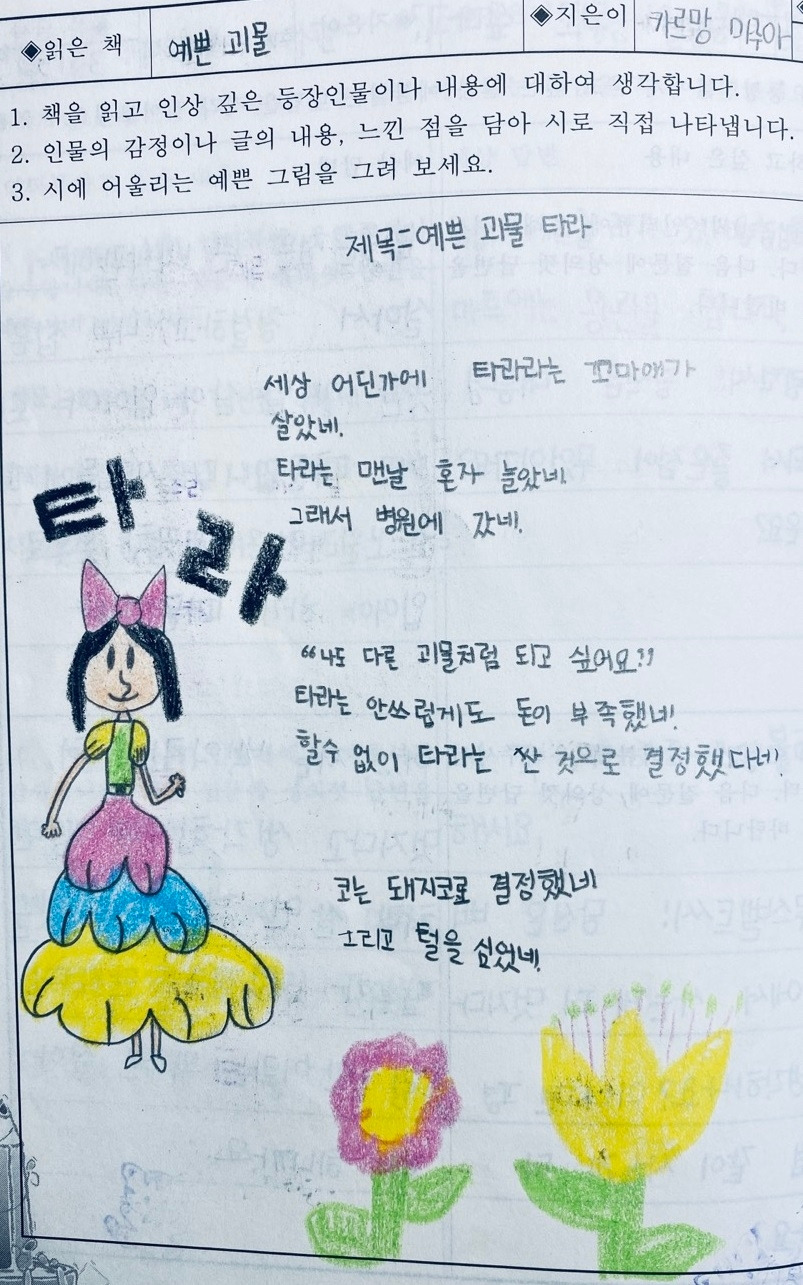 ◈읽은 책 예쁜 괴물 ◈지은이 카르망
1. 책을 읽고 인상 깊은 등장인물이나 내용에 대하여 생각합니다.
2. 인물의 감정이나 글의 내용, 느낀 점을 담아 시로 직접 나타냅니다.
3. 시에 어울리는 예쁜 그림을 그려 보세요.
제목=예쁜 괴물 타라
세상 어딘가에 타라라는 꼬마애가
살았네.
타라는 맨날 혼자 놀았네.
그래서 병원에 갔네.
타라
“나도 다른 괴물처럼 되고 싶어요”
타라는 안쓰럽게도 돈이 부족했네.
할수 없이 타라는 싼 것으로 결정했다네.
코는 돼지코로 결정했네
그리고 털을 심었네.